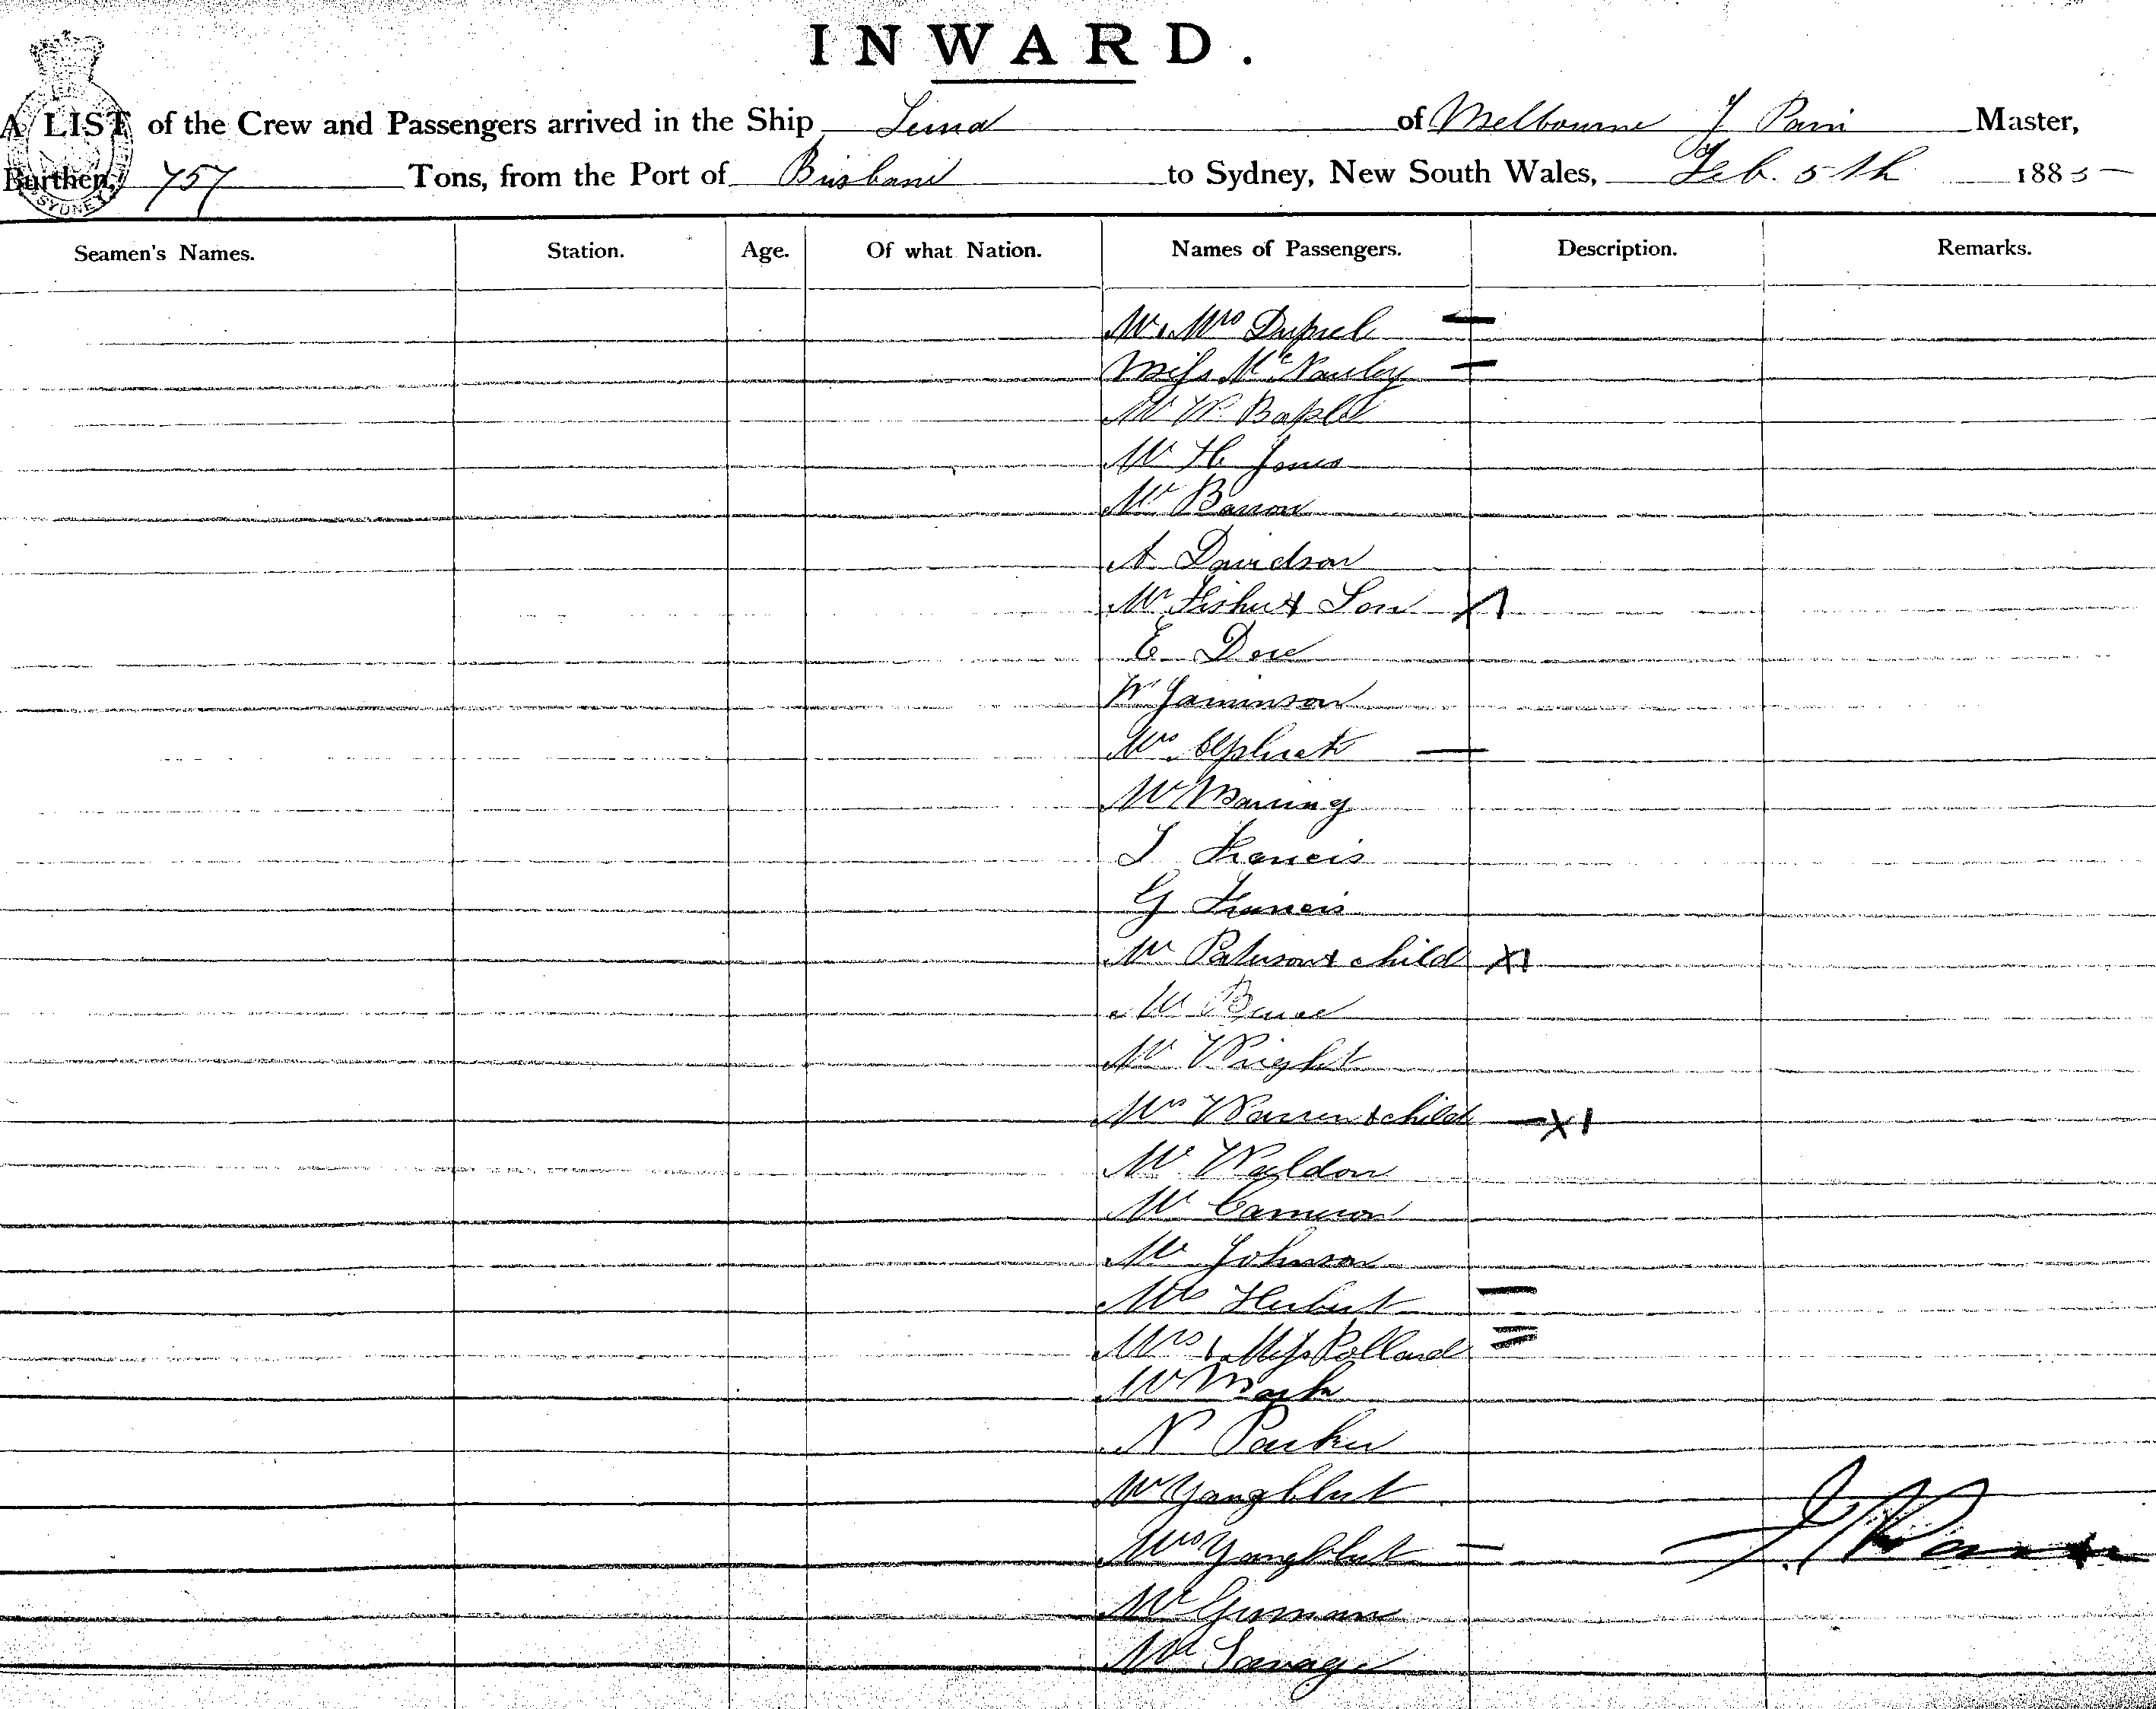 INWARD.
A LIST of the Crew and Passengers arrived in the Ship of Melbourne J Master,
Burthen, 757 Tons, from the Port of Brisbane to Sydney, New South Wales, Feb. 5th 1885
SYDNEY
Seamen's Names. Station. Age. Of what Nation. Names of Passengers. Description. Remarks.
Mr & Mrs
Miss Mc
Mr W.
Mr H Jones
Mr Barron
A Davidson
Mr Fisher & Son X1
E Dove
W Jaminson
Mrs
Mr
Francis
G Francis
Mr Paterson & child X1
Mr Bruce
Mr Wright
Mrs Warren & child X1
Mr Weldon
Mr Cameron
Mr Johnson
Mrs Herbert
Mrs & Miss Pollard
Mr
N Parker
Mr Yangblut
Mrs Yangblut
Mr
Mr Savage